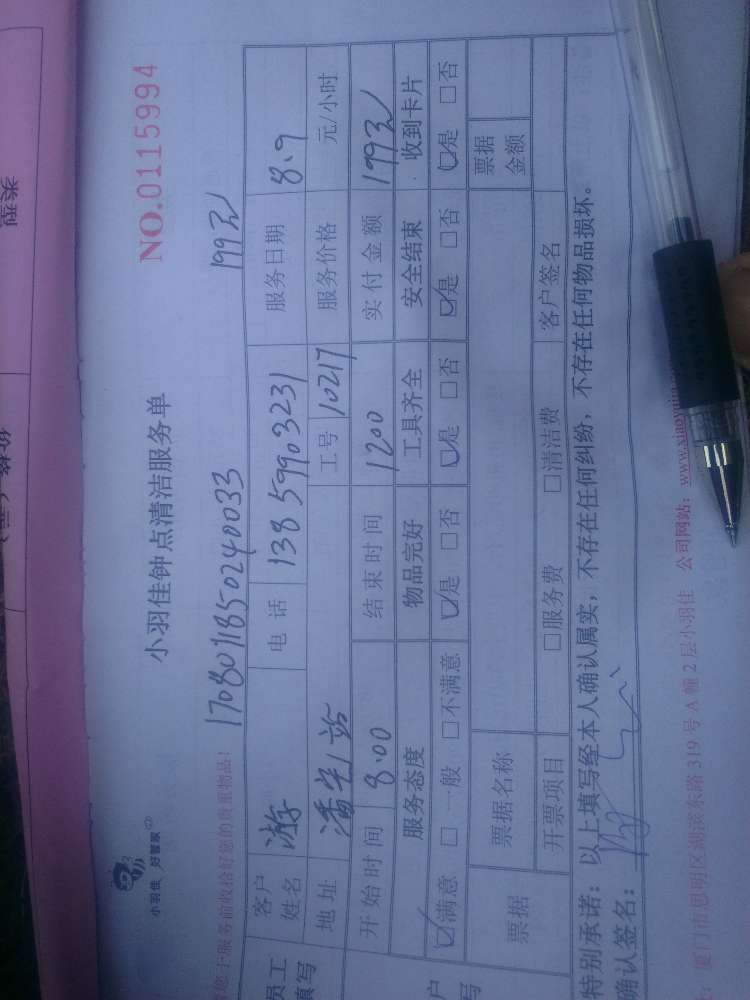 类型
小羽佳 好管家
小羽佳钟点清洁服务单
NO.0115994
您于服务前收拾好您的贵重物品!
1708011850240033
199元
员工
填写
客户
姓名
游
电话
13859903231
服务日期
8.9
地址
工号
10217
服务价格
元/小时
开始时间
8:00
结束时间
1200
实付金额
199元
服务态度
物品完好
工具齐全
安全结束
收到卡片
☑满意 □一般 □不满意
☑是 □否
☑是 □否
☑是 □否
☑是 □否
户
写
票据
票据名称
票据
金额
开票项目
□服务费 □清洁费
客户签名
特别承诺:以上填写经本人确认属实,不存在任何纠纷,不存在任何物品损坏。
确认签名:
:厦门市思明区湖滨东路 319 号 A 幢 2 层小羽佳 公司网站:www.xiaoyujia